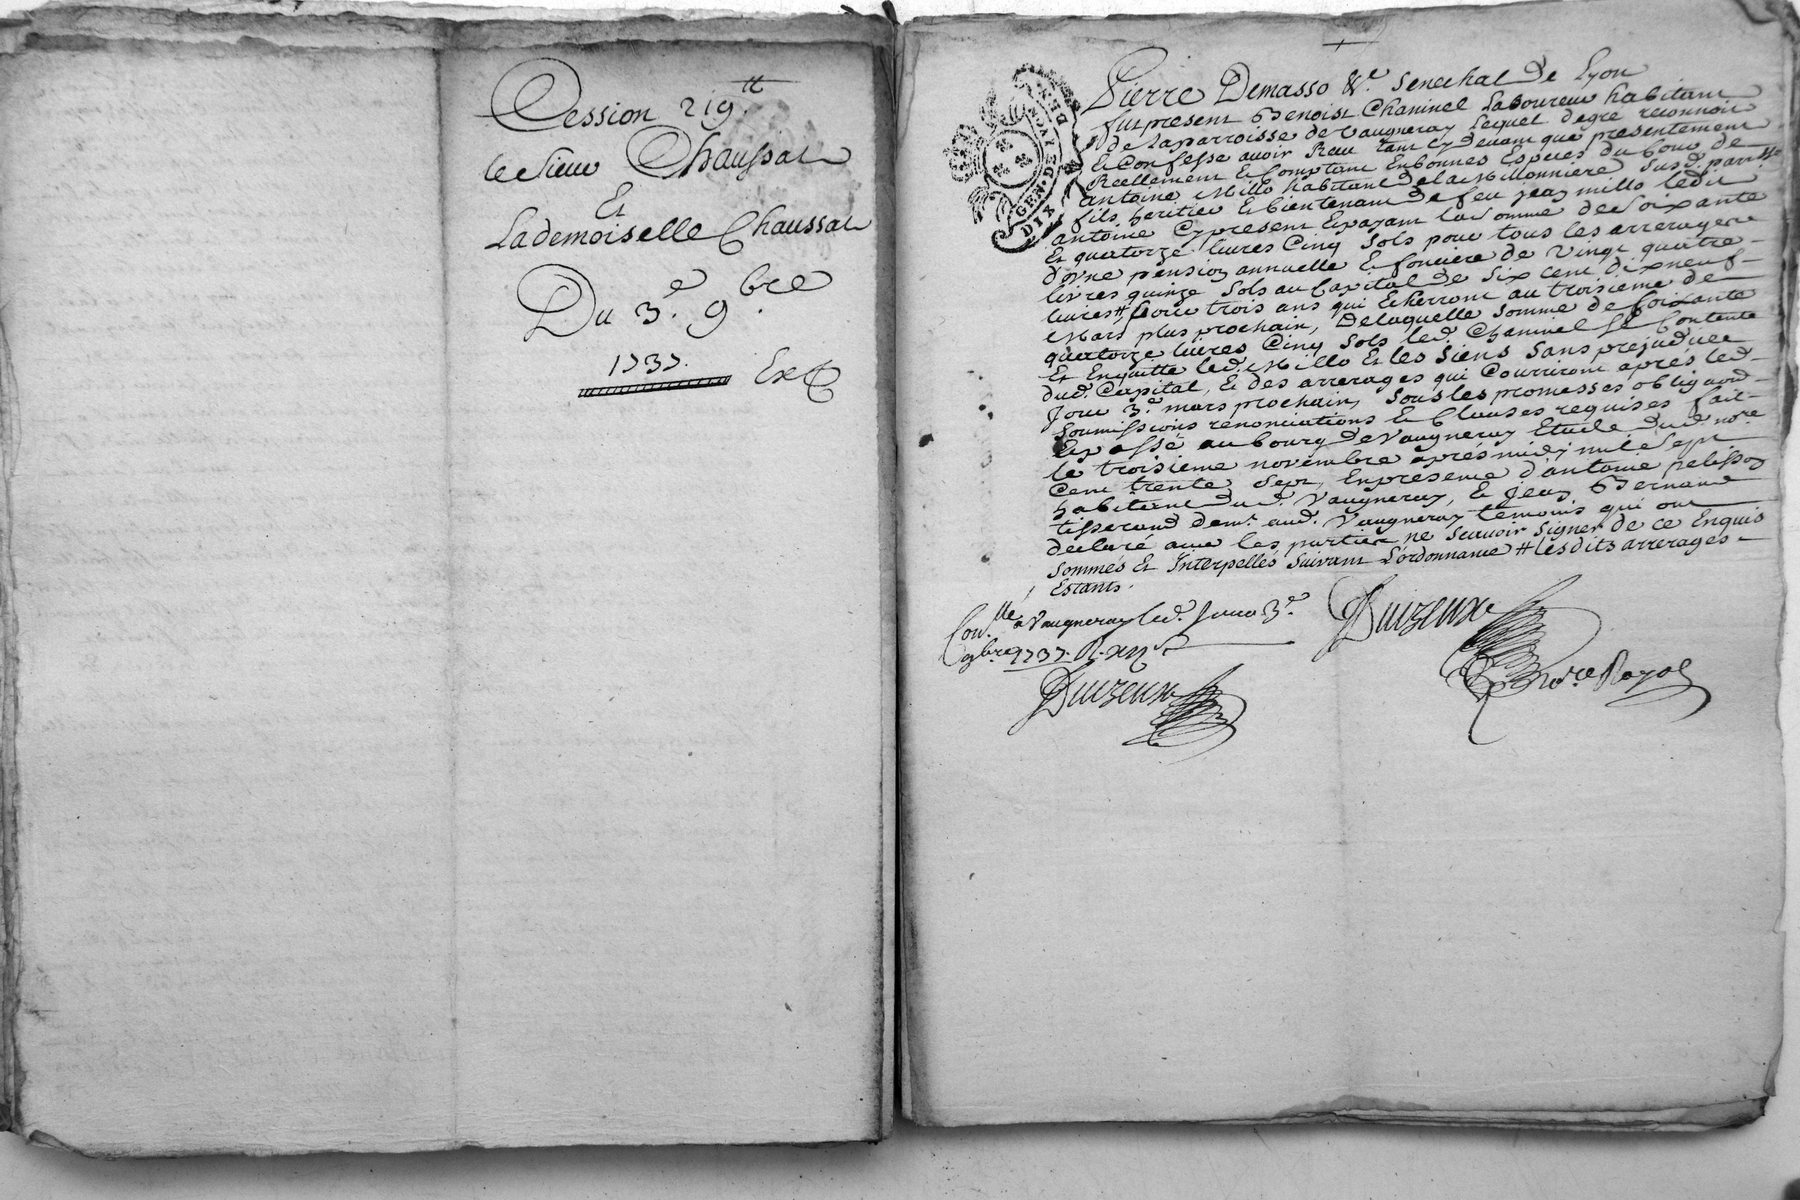 Cession 219.tt
le Sieur Chaussat
Et
Lademoiselle Chaussat
Du 3.e 9.bre
1737.
Ex
GEN. DE LYON
DIX DEN
Pierre Demasso &.e Senechal de Lyon
fut present Benoist Chaminel Laboureur habitant
de laparroisse de Vaugneray lequel degré reconnoit
Et Confesse avoir Receu tant cy devant que presentement
Reellement Et Comptant En bonnes Especes du Cours de
antoine Millo habitant de la Millonniere Susd. parroisse
fils heritier Et bientenant de feu jean millo ledit
antoine Cy present Et payant la Somme de Soixante
Et quatorze livres Cinq Sols pour tous les arrerages
d'vne pension annuelle Et fonciere de Vingt quattre
livres quinze Sols au Capital de Six cent dixneuf
livres # pour trois ans qui Echerront au troisieme de
Mars plus prochain, De laquelle Somme de Soixante
quatorze livres Cinq Sols led. Chaminel Se Contente
Et Enquitte led. Millo Et les Siens Sans prejudice
dud. Capital, Et des arrerages qui Courriront aprés led.
Jour 3.e mars prochain, Sous les promesses obligaons
Soumissions renonciations Et Clauses requises fait
Et passé au bourg de Vaugneray Etude dud. no.re
le troisieme novembre aprés midy mil Sept
Cent trente Sept, En presence d'antoine pelisson
habitant dud. Vaugneray, Et Jean Bernard
tisserand dem.t aud. Vaugneray temoins qui ont
declaré avec les parties ne Scavoir Signer de ce Enquis
Sommés Et Interpellés Suivant L'ordonnance # lesdits arrerages
Estants.
Con.llé a Vaugneray led. Jour 3.e
9bre 1737. R. xij s
Duizeux
Duizeux
No.re Royal